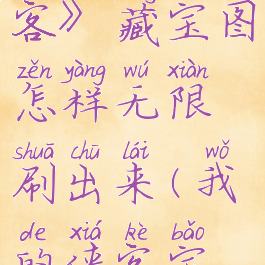 客》藏宝图
zěn yàng wú xiàn
怎样无限
shuā chū lái wǒ
刷出来(我
de xiá kè bǎo
的侠客宝